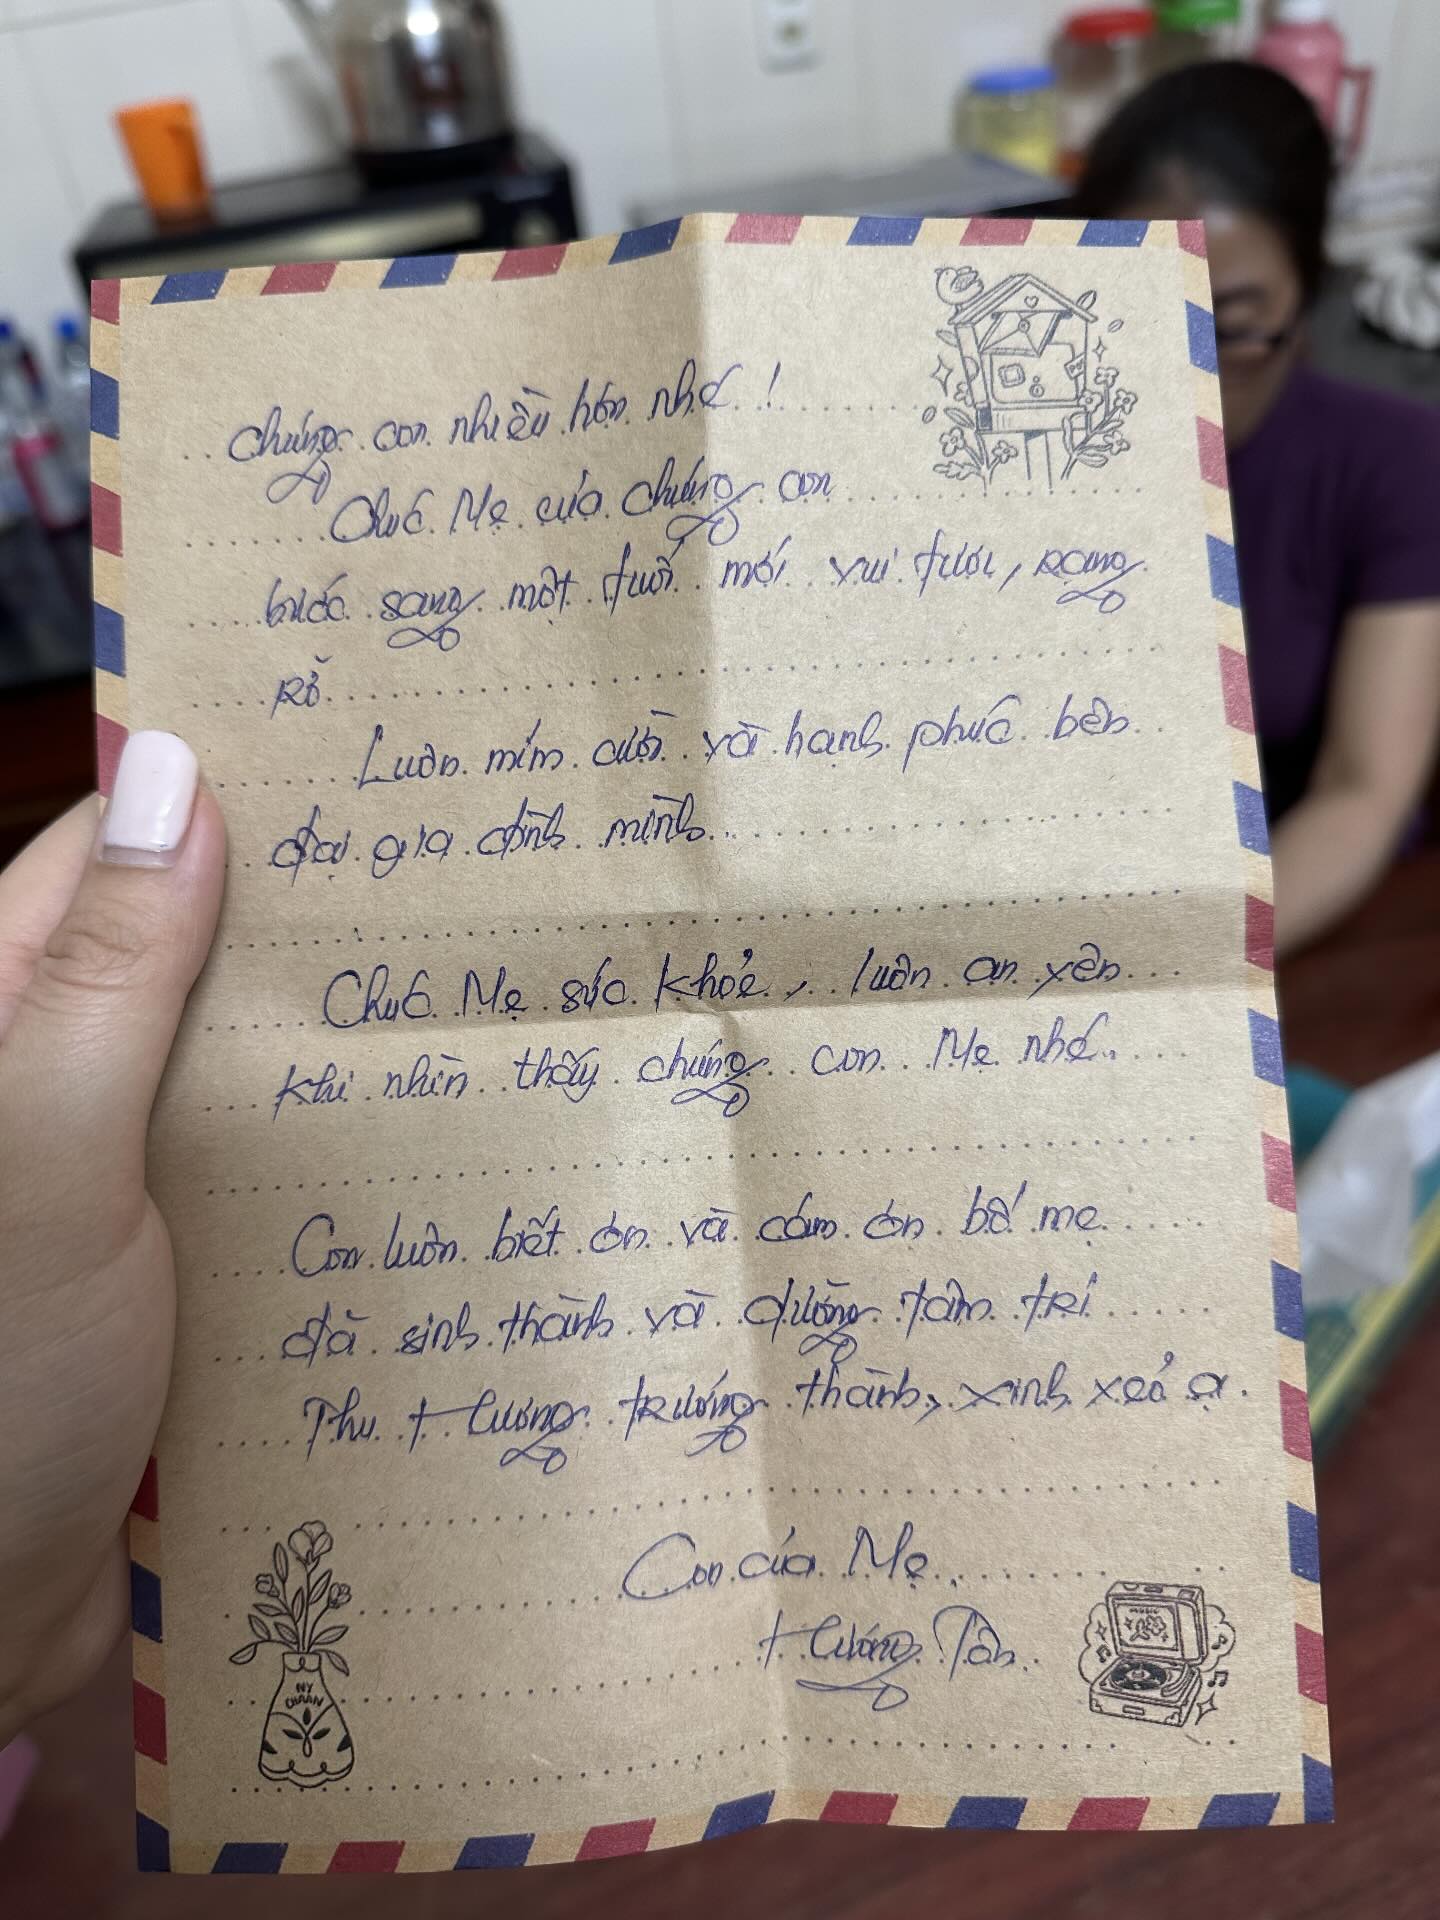 chúng con nhiều hơn nhé !
Chúc Mẹ của chúng con
bước sang một tuổi mới vui tươi, rạng
rỡ
Luôn mỉm cười và hạnh phúc bên
đại gia đình mình
Chúc Mẹ sức khỏe, luôn an yên
khi nhìn thấy chúng con Mẹ nhé.
Con luôn biết ơn và cám ơn bố mẹ
đã sinh thành và dưỡng tâm trí
Thu Hương trưởng thành, xinh xẻo ạ.
Con của Mẹ.
Hương Tân.
MUSIC
NY
CHAAN